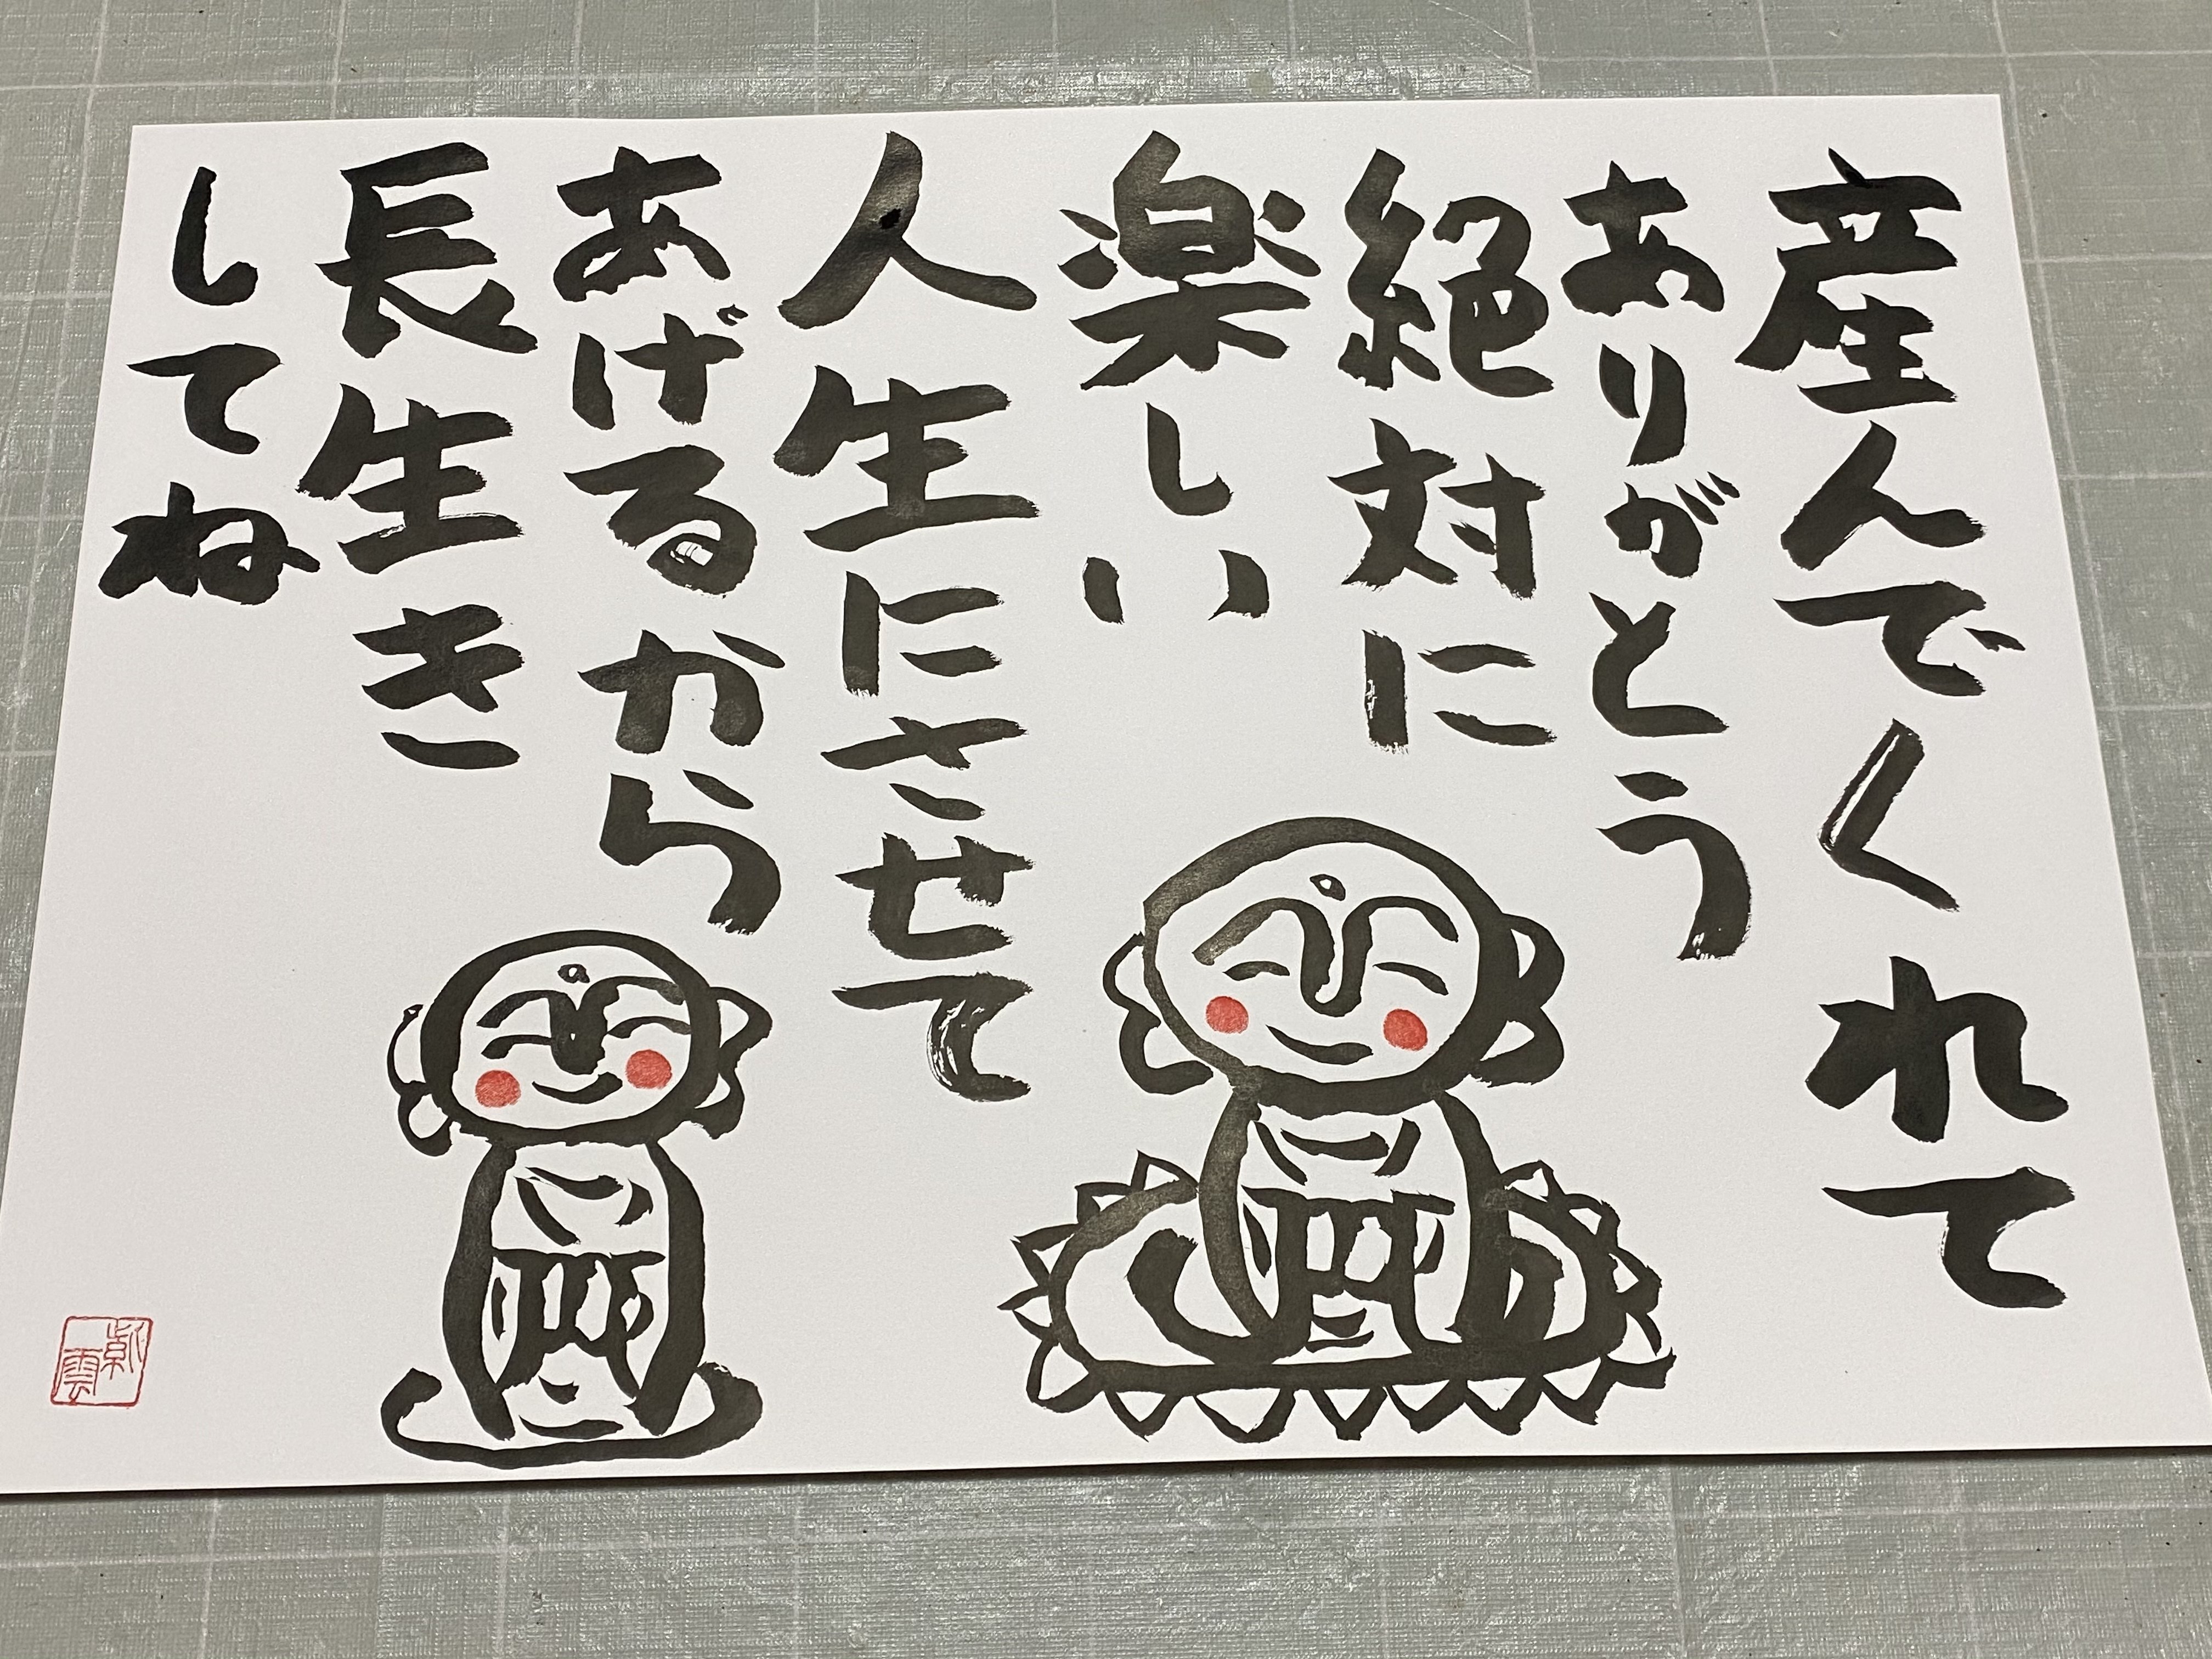 産んでくれて
ありがとう
絶対に
楽しい
人生にさせて
あげるから
長生き
してね